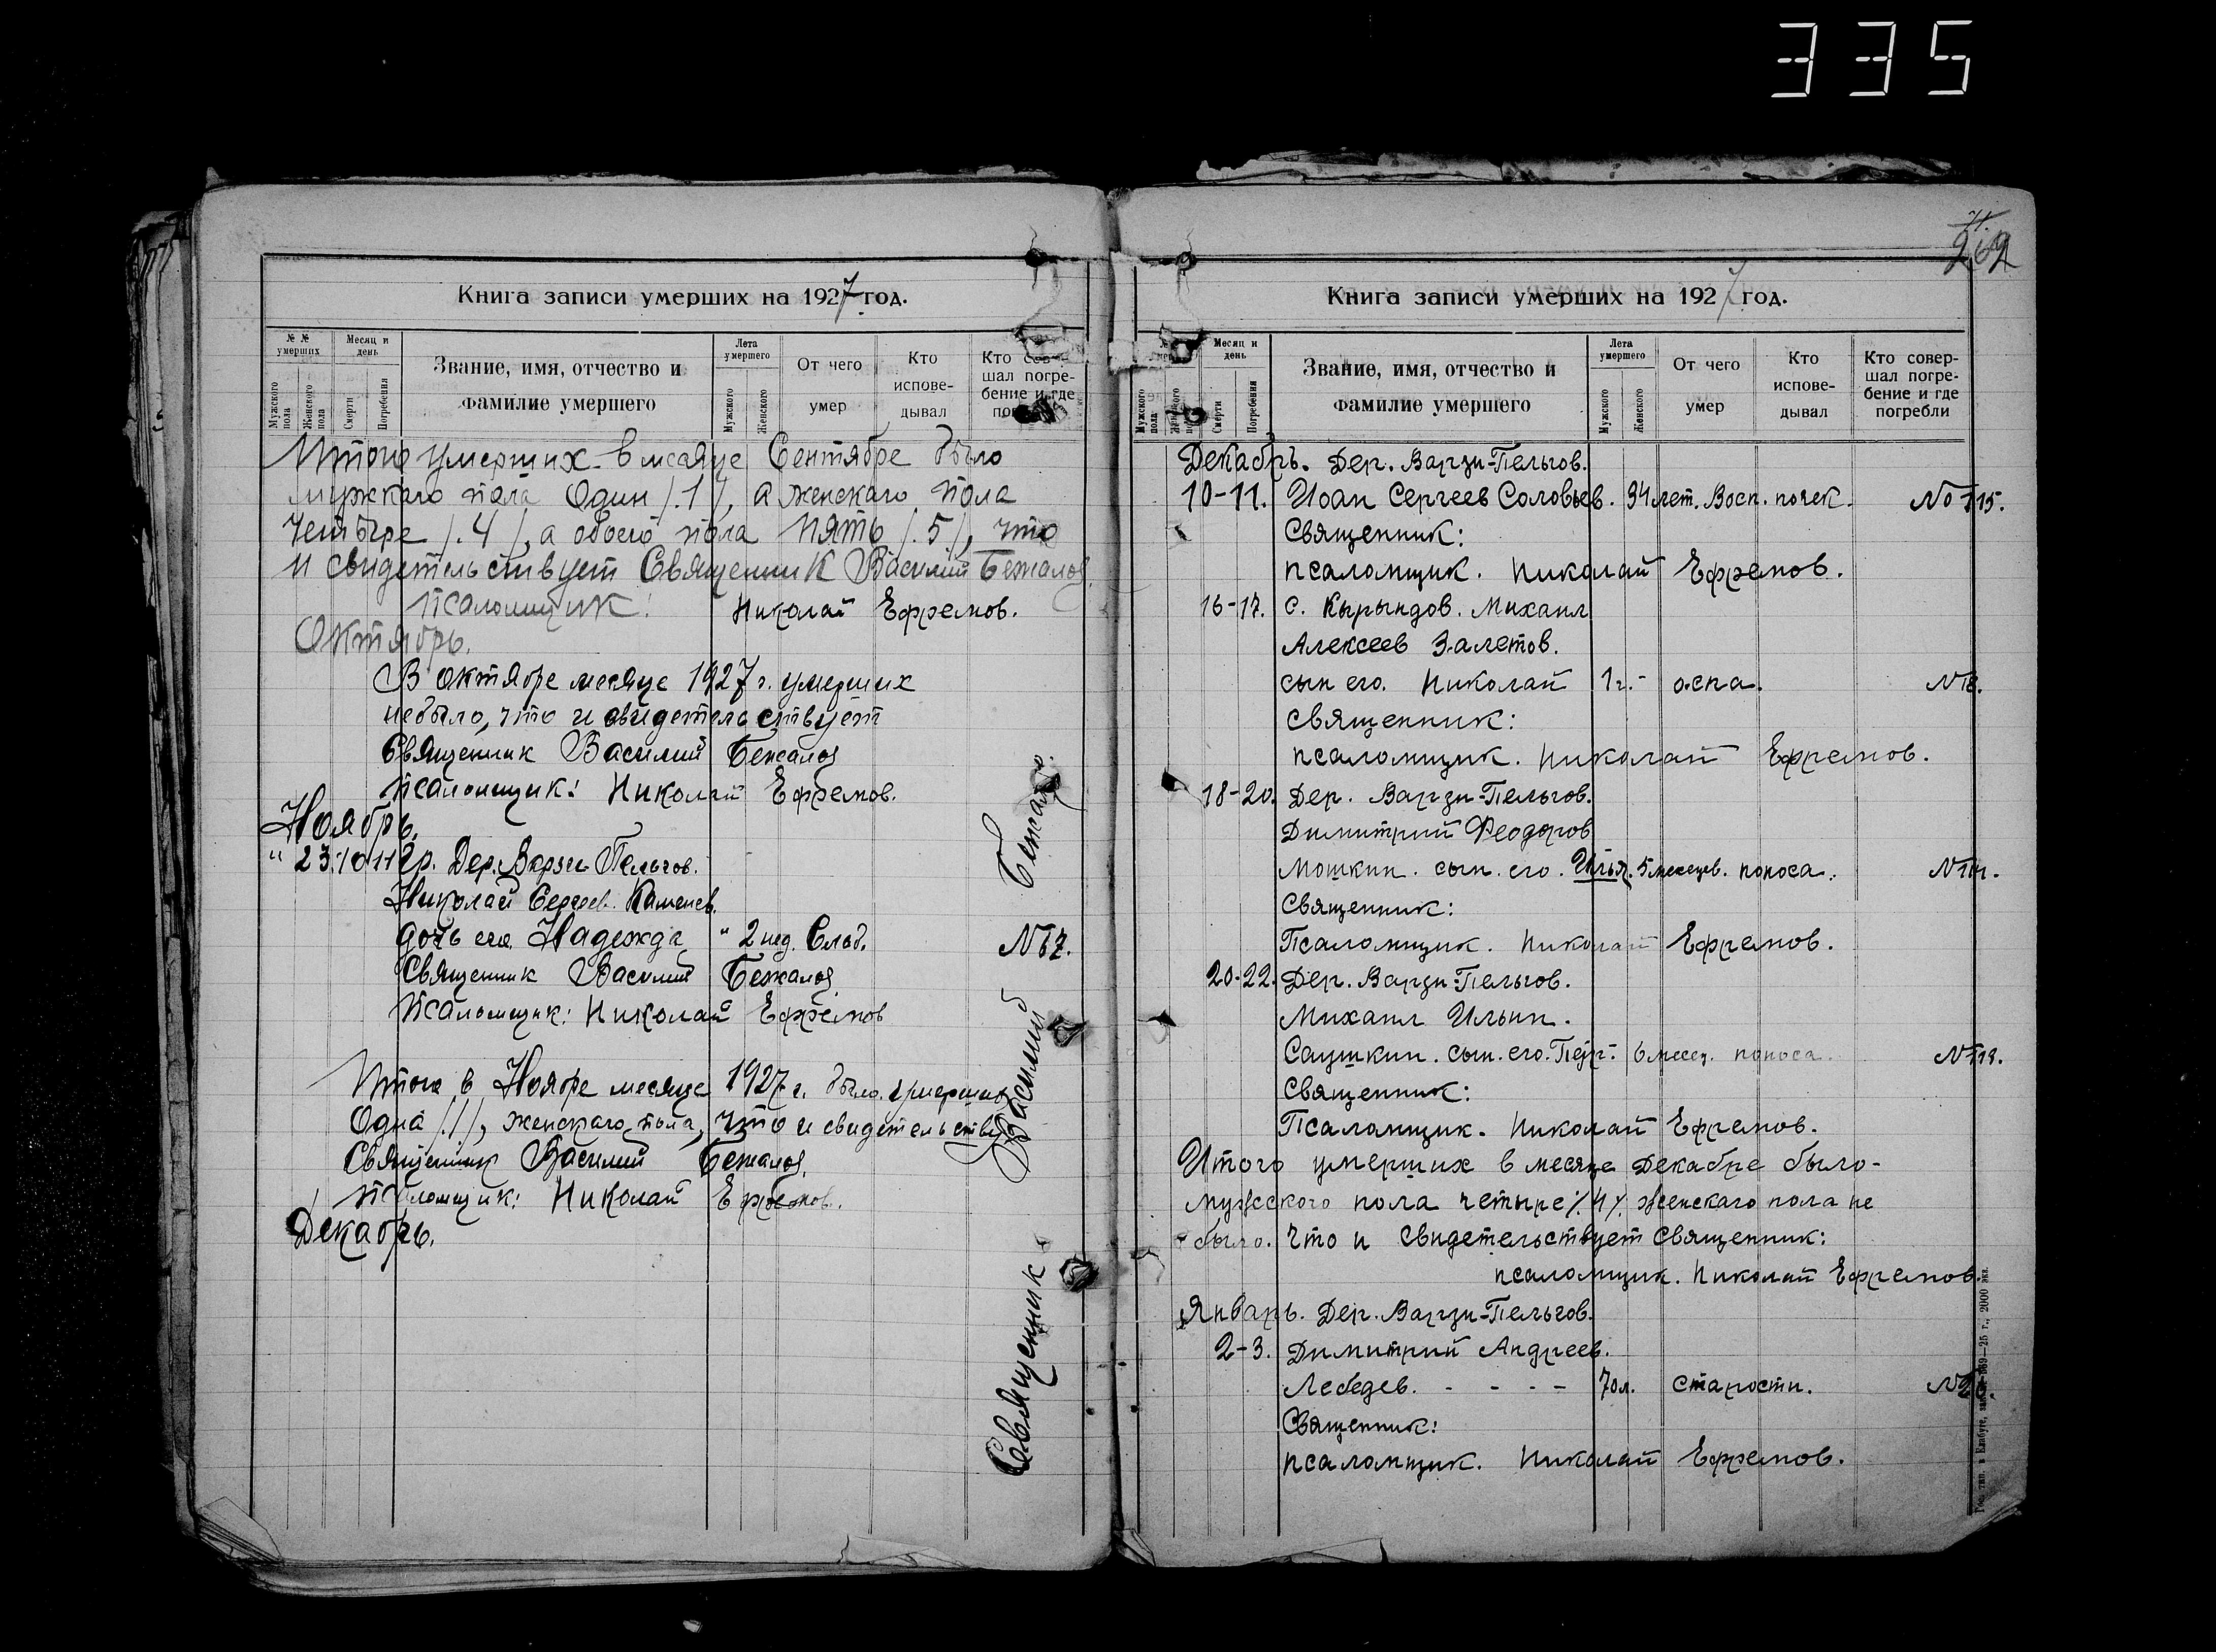 335
Книга записи умерших на 1927 год.
№ № умерших
Мужского пола
Женского пола
Месяц и день
Смерти
Погребения
Звание, имя, отчество и фамилие умершего
Лета умершего
Мужского
Женского
От чего умер
Кто исповедывал
Кто совершал погребение и где
Итого умерших в месяце Сентябре было
мужскаго пола Один /.1/, а женскаго пола
четыре /.4/, а обоего пола пять /.5/, что
и свидетельствует Священник Василий Бежалов.
Псаломщик: Николай Ефремов.
Октябрь.
В октябре месяце 1927 г. умерших
небыло, что и свидетельствует
Священник Василий Бежалов
Псаломщик: Николай Ефремов.
Ноябрь.
" 23. 10 11 Гр. Дер. Варзи Пельгов.
Николай Сергеев. Каменев.
дочь его Надежда " 2 нед. Слаб. №
Священник Василий Бежалов
Псаломщик: Николай Ефремов
Итого в Ноябре месяце 1927 г. было умерших
Одна /.1/, женскаго пола, что и свидетельствует
Священник Василий Бежалов.
Псаломщик: Николай Ефремов.
Декабрь.
Священник Василий Бежалов.
262
Книга записи умерших на 1927 год.
Мужского пола
Женского
Месяц и день
Смерти
Погребения
Звание, имя, отчество и фамилие умершего
Лета умершего
Мужского
Женского
От чего умер
Кто исповедывал
Кто совершал погребение и где погребли
Декабрь. Дер. Варзи-Пельгов.
10-11. Иоан Сергеев Соловьев. 34 лет. Восп. почек. № 115.
Священник:
псаломщик. Николай Ефремов.
16-17. с. Кырындов. Михаил
Алексеев Залетов.
сын его. Николай 1 г. - оспа. №
Священник:
псаломщик. Николай Ефремов.
18-20. Дер. Варзи-Пельгов.
Димитрий Феодоров
Мошкин. сын. его. Илья. 5 месецев. поноса. №
Священник:
Псаломщик. Николай Ефремов.
20-22. Дер. Варзи-Пельгов.
Михаил Ильин.
Саушкин. сын. его. Петр. - 6 месец. поноса. №
Священник:
Псаломщик. Николай Ефремов.
Итого умерших в месяце Декабре было-
мужеского пола четыре /.4/. женскаго пола не
было. Что и свидетельствует священник:
псаломщик. Николай Ефремов.
Январь. Дер. Варзи-Пельгов.
2-3. Димитрий Андреев.
Лебедев. - - - - 70 л. старости. №
Священник:
псаломщик. Николай Ефремов.
Гос. тип. в Елабуге, —25 г., 2000 экз.